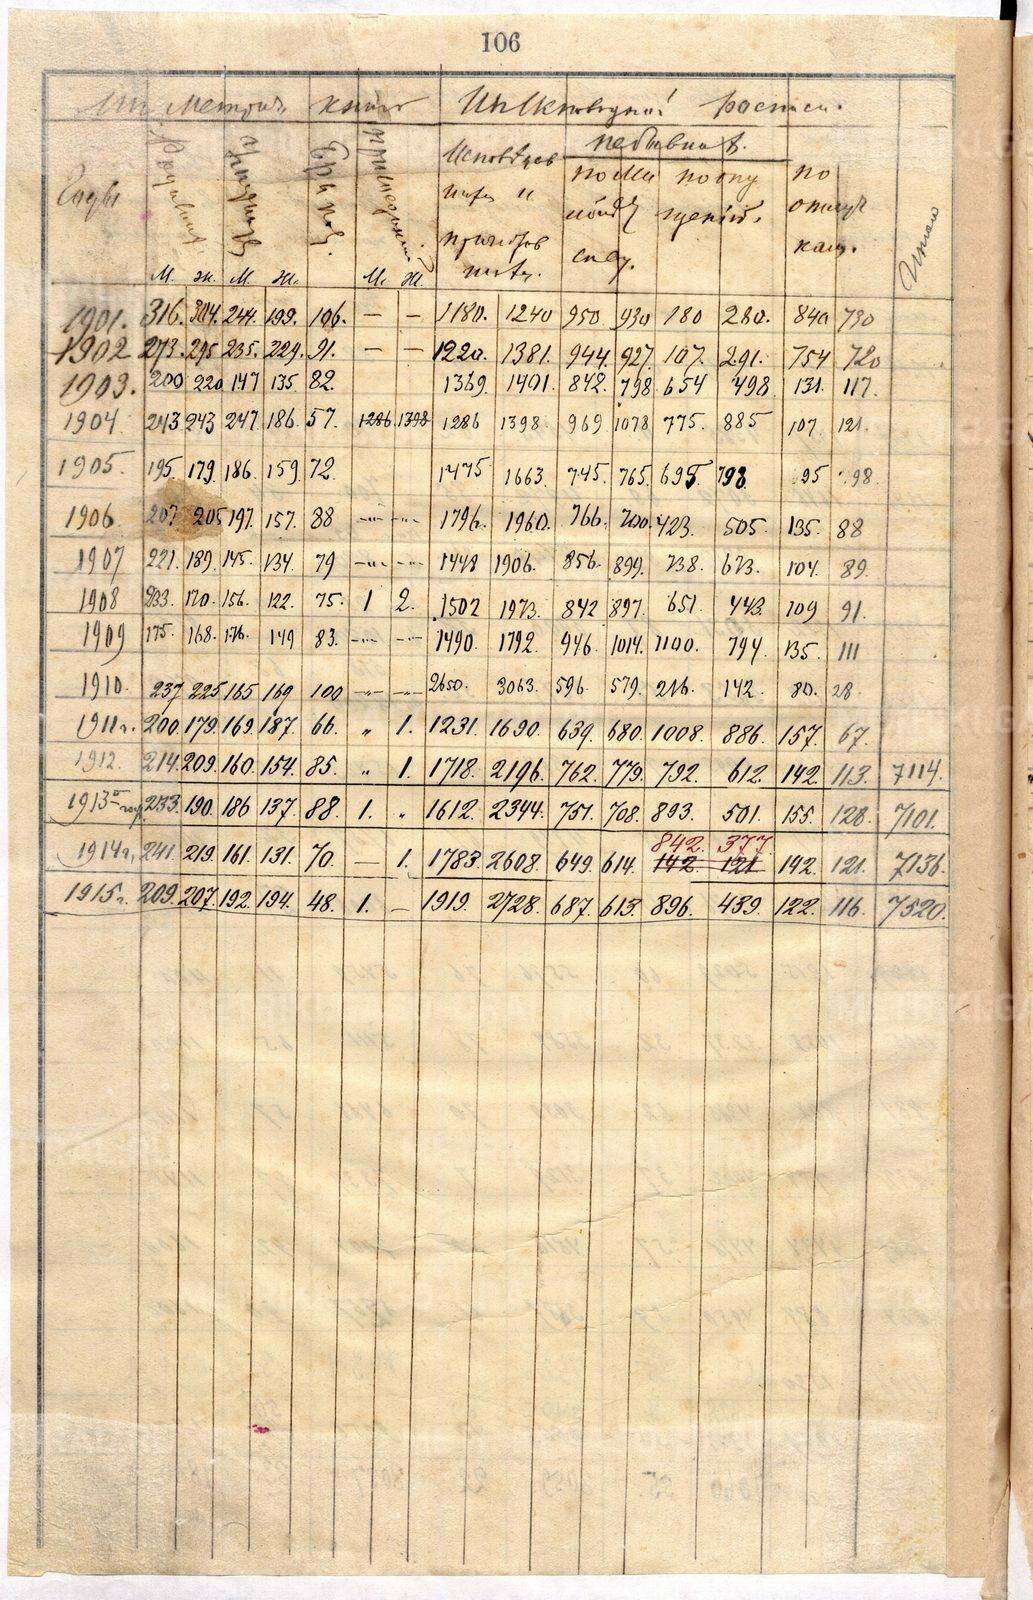 106
Изъ Метрич. книгъ Изъ Исповедной росписи.
Годы Родивших. Умерших Браков. Присоединен. Исповедчев небывших. Итого
шихъ и по мал по опу по
причастив ществ отлуч
шихся. ках.
М. ж. М. Ж. М. Ж.
1901. 316. 304. 244. 199. 106. — — 1180. 1240 950 930 180 280. 840 730
1902 273. 295 235. 229. 91. — — 1220. 1381. 944. 927. 107. 291. 754 720
1903. 200 220 147 135 82. 1369. 1401. 842. 798. 654 498 131. 117.
1904 243 243 247. 186. 57. 1286 1398 1286 1398. 969. 1078 775. 885 107 121.
1905. 195. 179. 186. 159. 72. 1475 1663. 745. 765. 695 798. 95 98.
1906 207 205 197. 157. 88 -"- -"- 1796. 1960. 766. 700. 423. 505. 135. 88
1907 221. 189. 145. 134. 79 -"- -"- 1448 1906. 856. 899. 738. 673. 104. 89.
1908 233. 170. 156. 122. 75. 1 2. 1502 1973. 842 897. 651. 443. 109 91.
1909 175. 168. 176. 149 83. -"- -"- 1490. 1792. 946. 1014. 1100. 794. 135. 111
1910. 237 225 165 169 100 -"- -"- 2650. 3063. 596. 579. 216. 142. 80. 28
1911г. 200. 179. 169. 187. 66. „ 1. 1231. 1690. 639. 680. 1008. 886. 157. 67.
1912. 214. 209. 160. 154. 85. „ 1. 1718. 2196. 762. 779. 792. 612. 142. 113. 7114.
1913й год 233. 190. 186 137. 88. 1. „ 1612. 2344. 751. 708. 893. 501. 155. 128. 7101.
842. 377.
1914г. 241. 219. 161. 131. 70. — 1. 1783. 2608. 649. 614. 142. 121 142. 121. 7136.
1915г. 209. 207. 192. 194. 48. 1. — 1919. 2728. 687. 613. 896. 439. 122. 116. 7520.